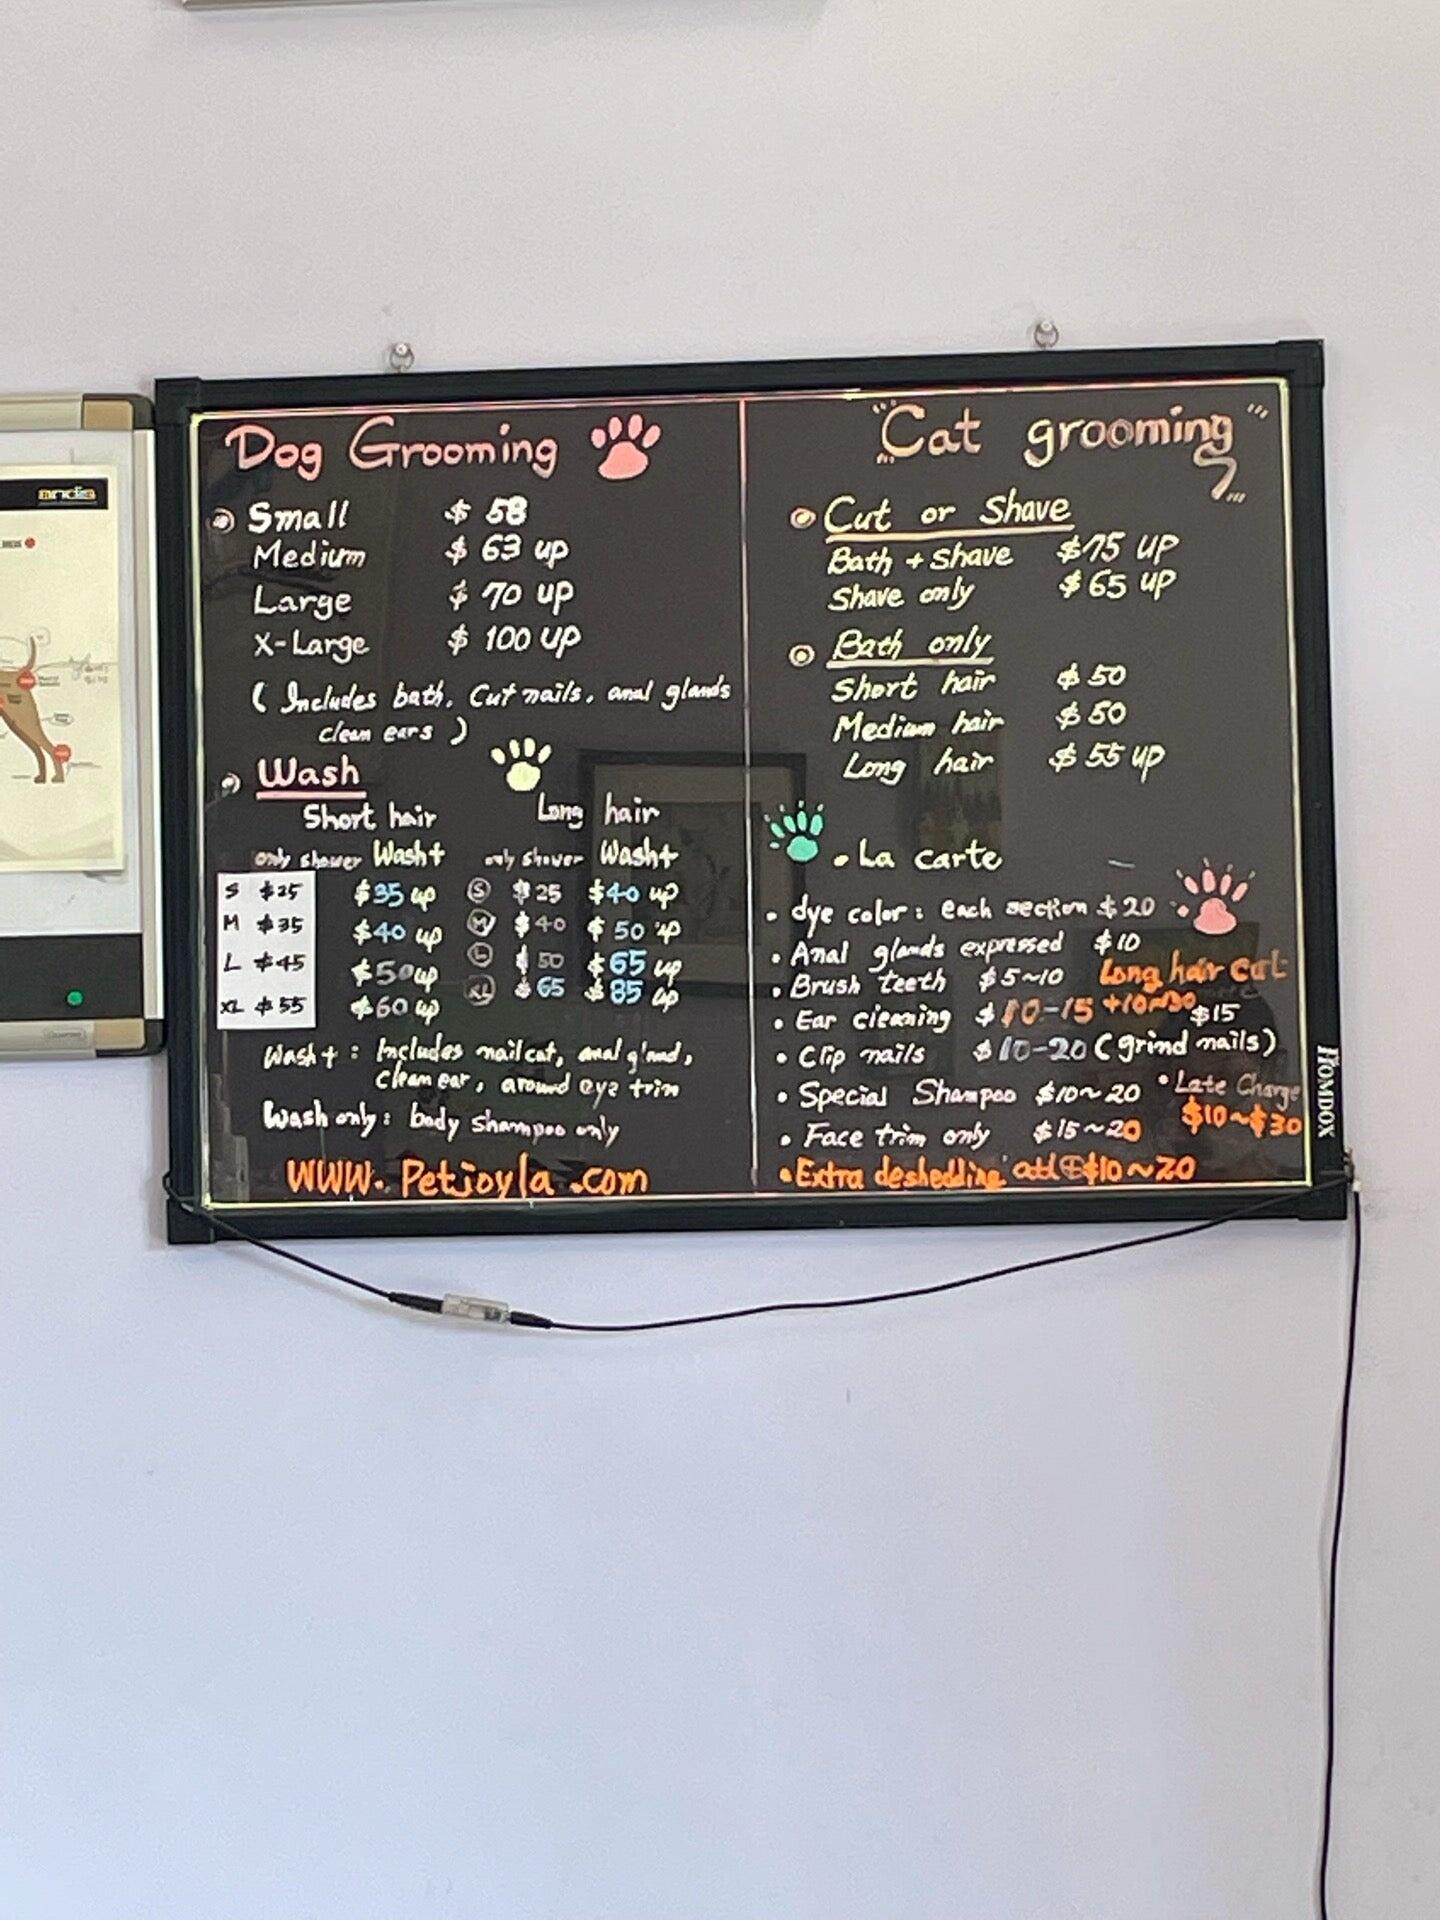 Dog Grooming
Small $ 58
Medium $ 63 up
Large $ 70 up
X-Large $ 100 up
( Includes bath, Cut nails, anal glands
clean ears )
Wash
Short hair Long hair
only shower Wash+ only shower Wash+
S $25 $35 up S $25 $40 up
M $35 $40 up M $40 $50 up
L $45 $50 up L $50 $65 up
XL $55 $60 up XL $65 $85 up
Wash+ : Includes nail cut, anal gland,
clean ear, around eye trim
Wash only : body shampoo only
WWW. Petjoyla .com
"Cat grooming"
Cut or Shave
Bath + Shave $75 up
Shave only $65 up
Bath only
Short hair $50
Medium hair $50
Long hair $55 up
• La carte
• dye color : each section $20
• Anal glands expressed $10
• Brush teeth $5~10
Long hair cut
+10~30
• Ear cleaning $10-15
$15
• Clip nails $10-20 (grind nails)
• Special Shampoo $10~20
• Late Charge
$10~$30
• Face trim only $15~20
• Extra deshedding add + $10~20
HOMDOX
andis